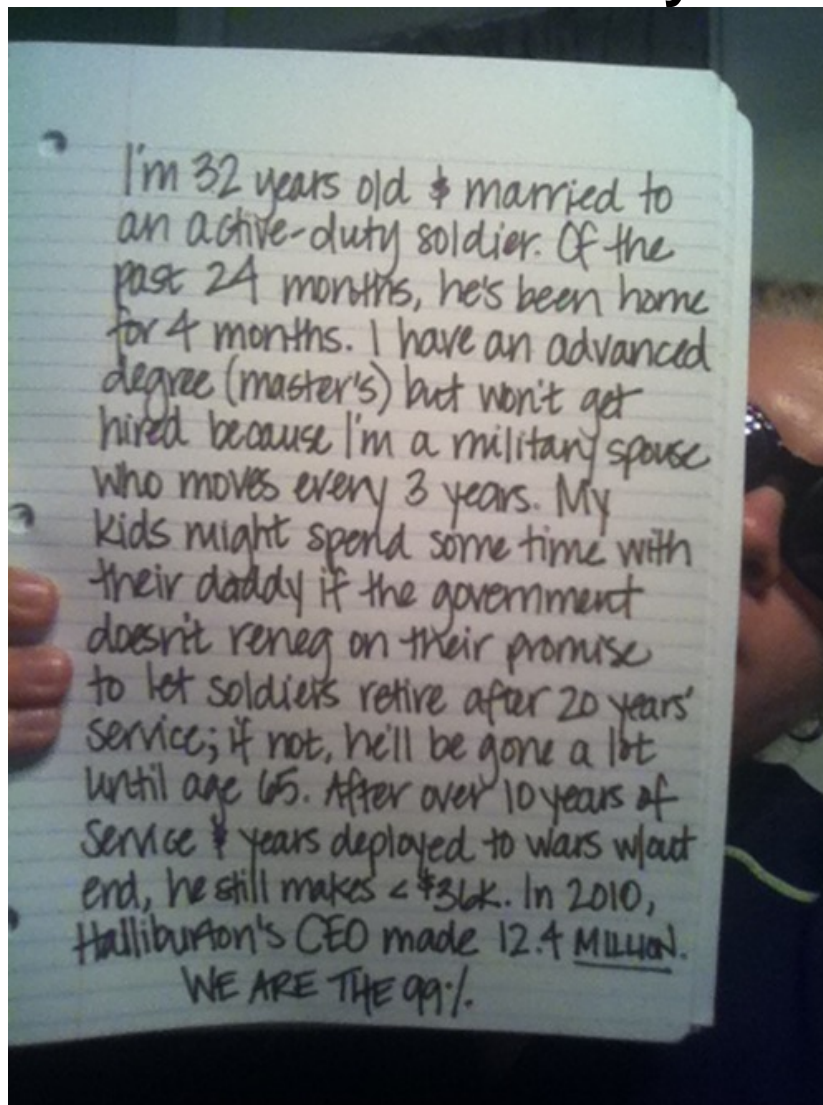 I'm 32 years old & married to
an active-duty soldier. Of the
past 24 months, he's been home
for 4 months. I have an advanced
degree (master's) but won't get
hired because I'm a military spouse
who moves every 3 years. My
kids might spend some time with
their daddy if the government
doesn't reneg on their promise
to let soldiers retire after 20 years'
service; if not, he'll be gone a lot
until age 65. After over 10 years of
service & years deployed to wars w/out
end, he still makes < $36K. In 2010,
Halliburton's CEO made 12.4 MILLION.
WE ARE THE 99%